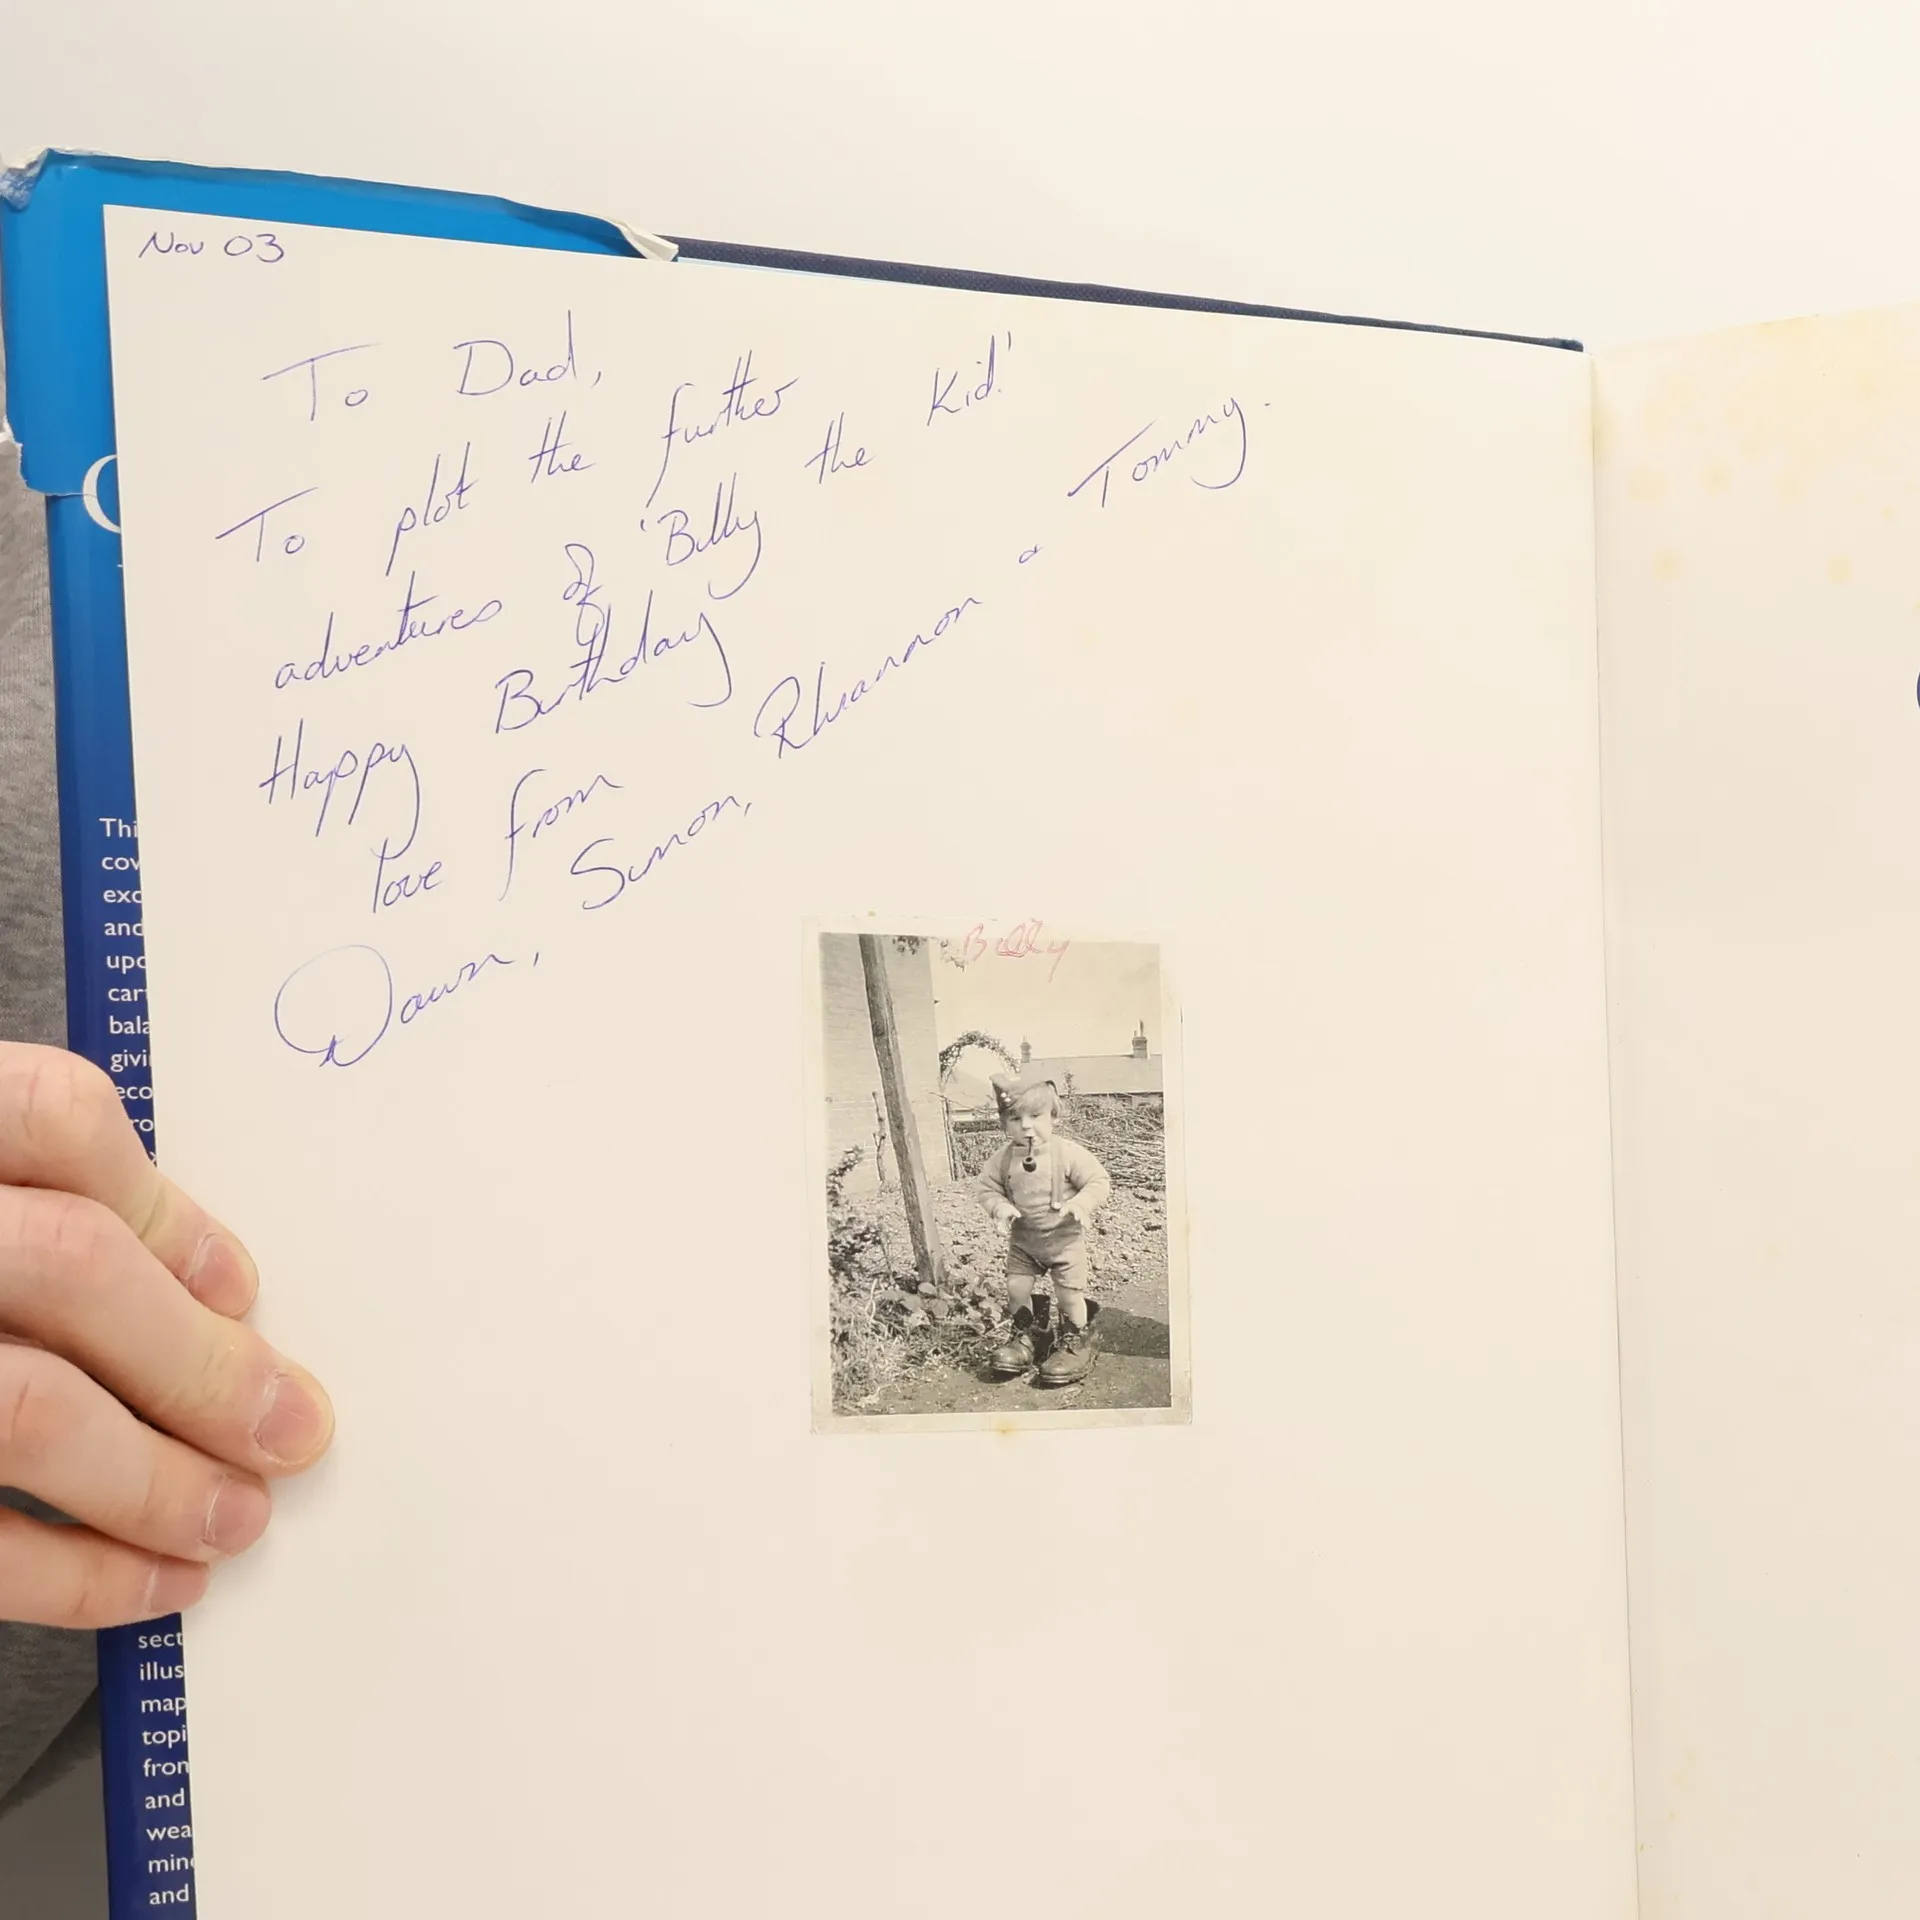 Nov 03
To Dad,
To plot the further
adventures of 'Billy the Kid!'
Happy Birthday
love from
Dawn, Simon, Rhiannon & Tommy.
Billy
Thi
cov
exc
and
upd
cart
bala
givi
eco
ro
sect
illus
map
topi
from
and
wea
mine
and